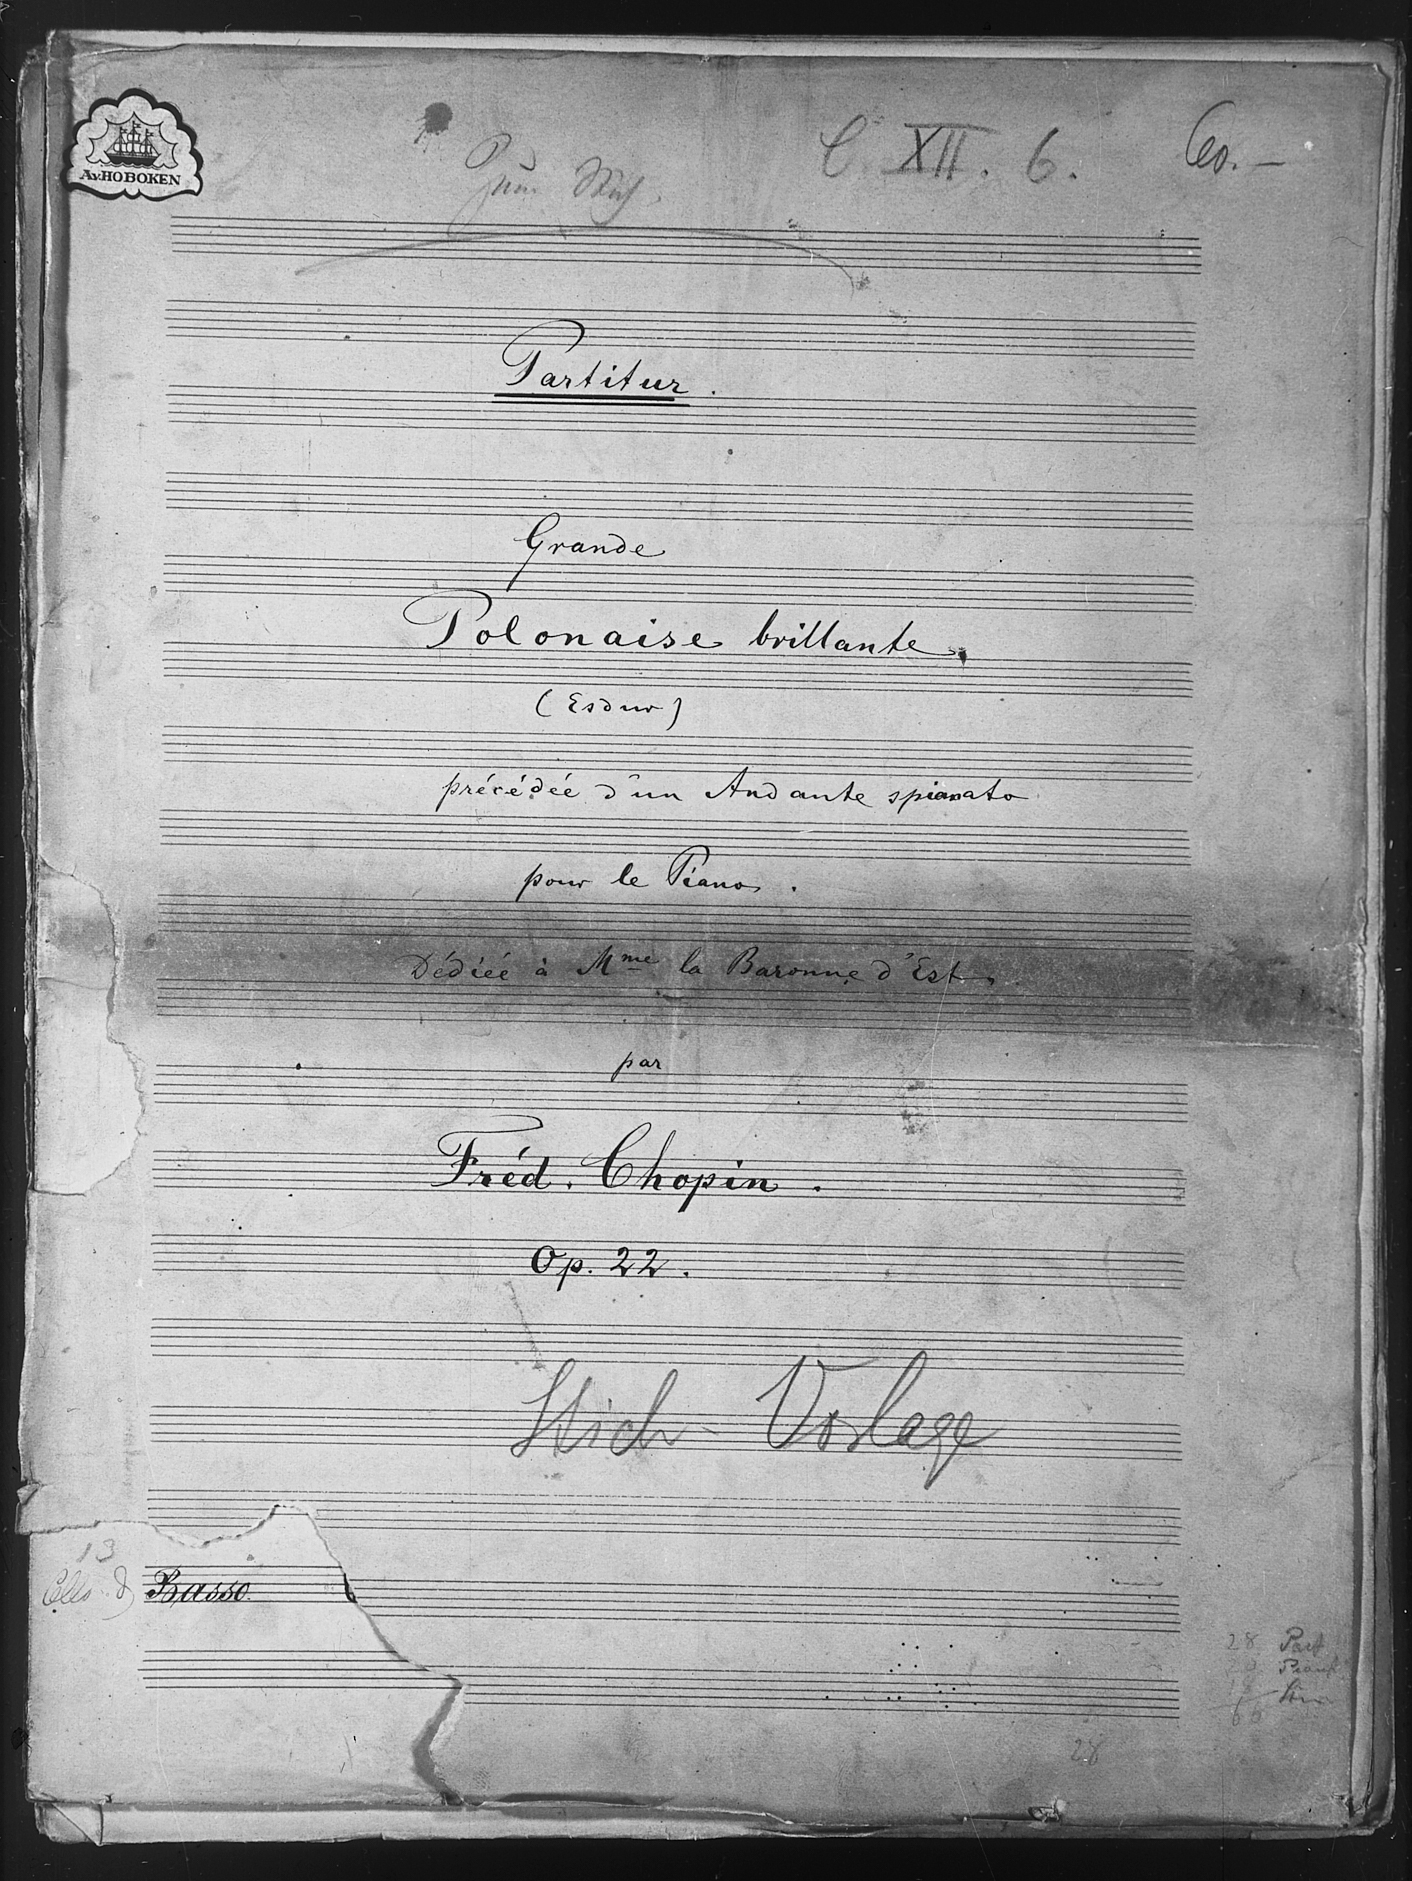 A.v.HOBOKEN
C XII. 6.
60.—
Zum Stich.
Partitur.
Grande
Polonaise brillante
(Esdur)
précédée d'un Andante spianato
pour le Piano.
Dédiée à Mme la Baronne d'Est
par
Fréd. Chopin.
Op. 22.
Stich-Vorlage
13
Cello &
Basso.
28 Part
66
28